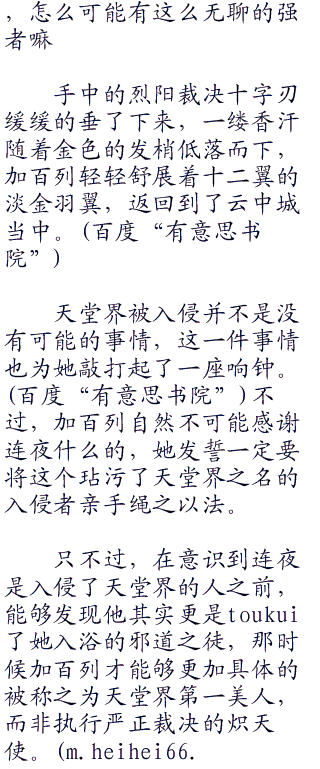 ，怎么可能有这么无聊的强
者嘛
手中的烈阳裁决十字刃
缓缓的垂了下来，一缕香汗
随着金色的发梢低落而下，
加百列轻轻舒展着十二翼的
淡金羽翼，返回到了云中城
当中。(百度“有意思书
院”)
天堂界被入侵并不是没
有可能的事情，这一件事情
也为她敲打起了一座响钟。
(百度“有意思书院”)不
过，加百列自然不可能感谢
连夜什么的，她发誓一定要
将这个玷污了天堂界之名的
入侵者亲手绳之以法。
只不过，在意识到连夜
是入侵了天堂界的人之前，
能够发现他其实更是toukui
了她入浴的邪道之徒，那时
候加百列才能够更加具体的
被称之为天堂界第一美人，
而非执行严正裁决的炽天
使。(m.heihei66.